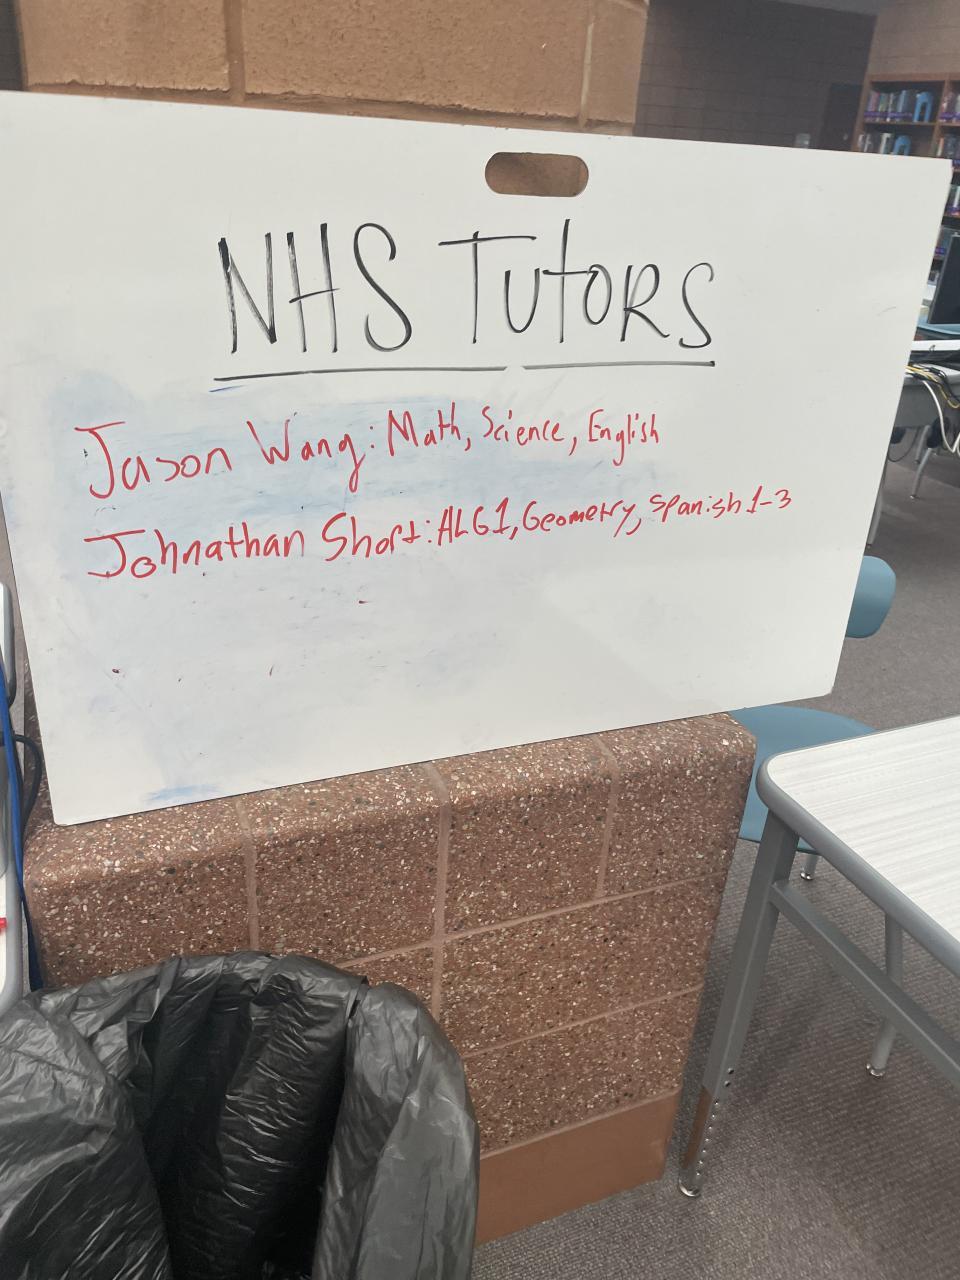 NHS Tutors
Jason Wang: Math, Science, English
Johnathan Short: ALG1, Geometry, Spanish 1-3